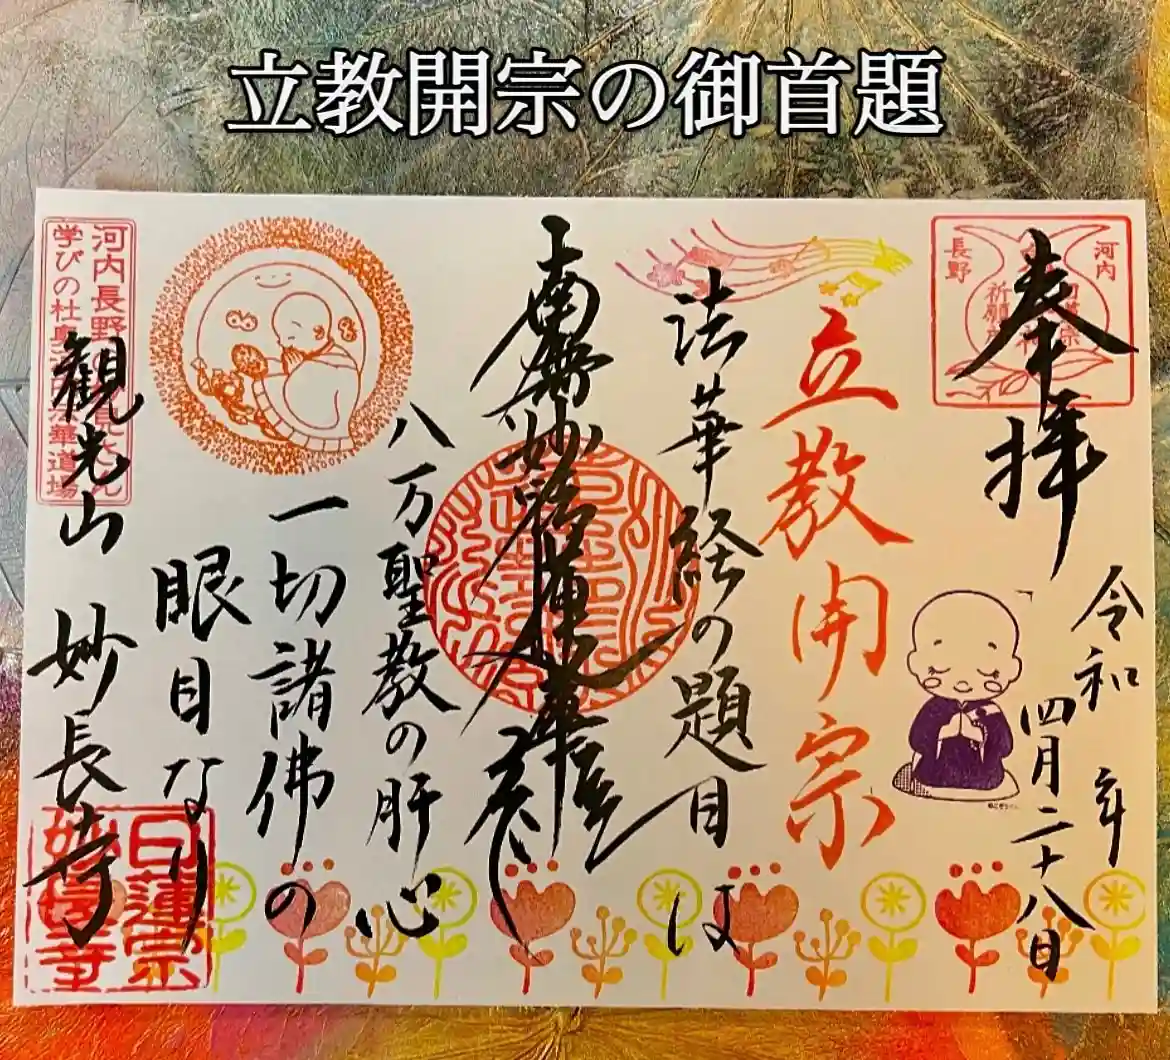 立教開宗の御首題
奉拝
河内
長野
令和 年
四月二十八日
立教開宗
法華経の題目は
南無妙法蓮華経
八万聖教の肝心
一切諸佛の
眼目なり
観光山 妙長寺
河内長野
学びの杜
華道場
日蓮宗
妙長寺